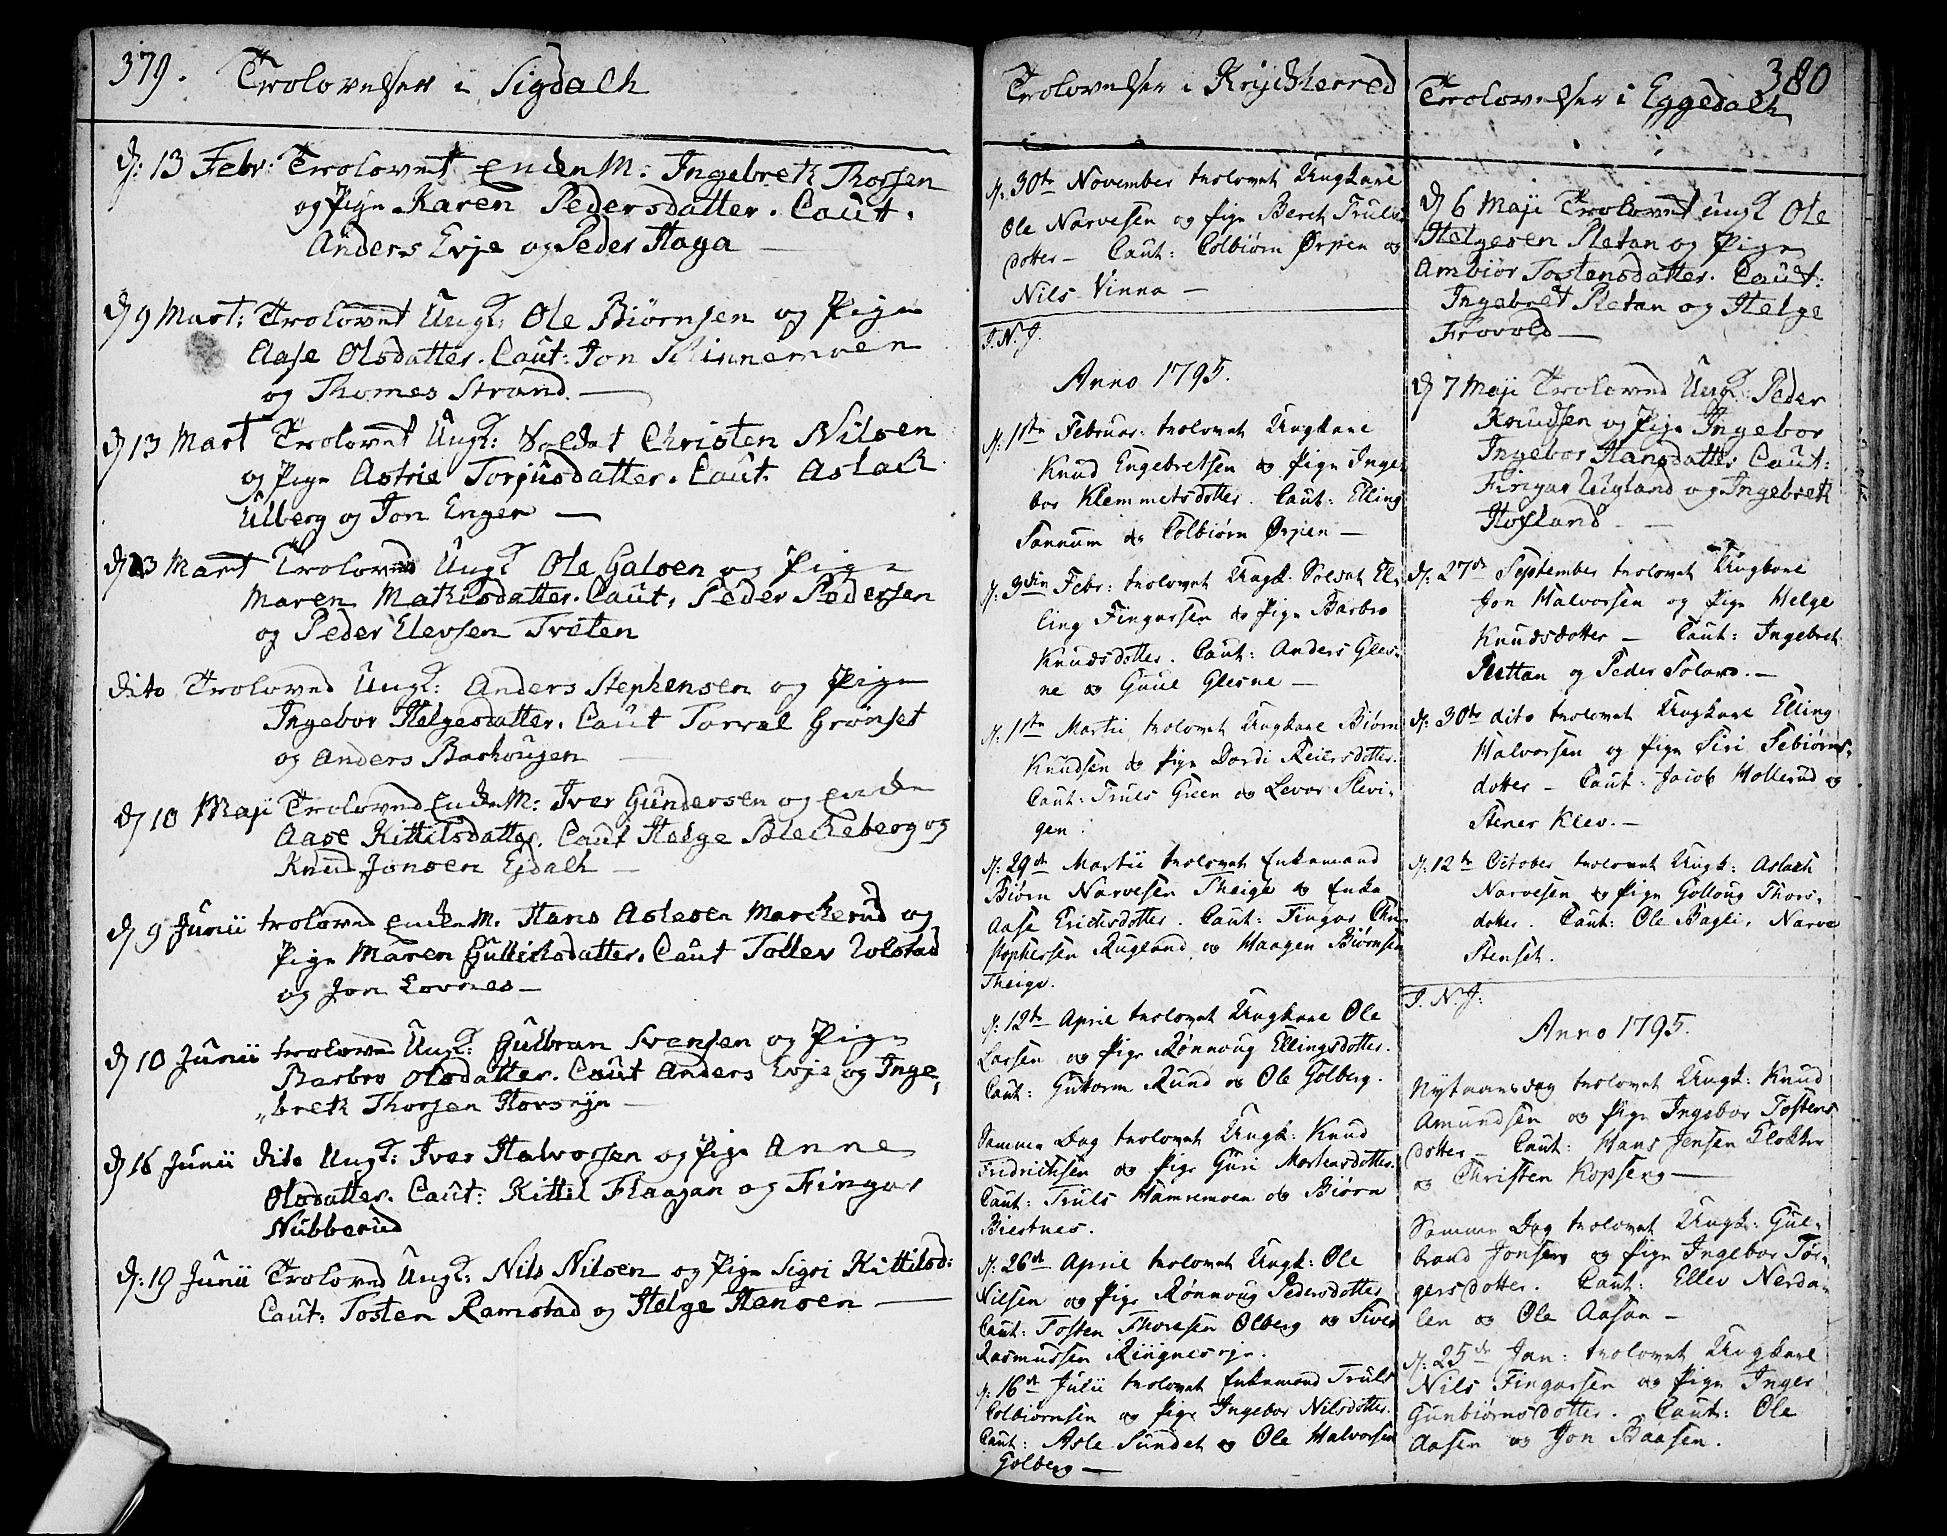 379.
Trolovelser i Sigdalh
d: 13 Febr: Trolovet Enkem: Ingebreth Thorsen
og Pige Karen Pedersdatter. Caut.
Anders Evje og Peder Haga —
d 9 Mart: Trolovet Ungk: Ole Biørnsen og Pige
Aase Olsdatter. Caut: Jon Skinnemoen
og Thomes Strand. —
d 13 Mart Trolovet Ungk: Soldat Christen Nilsen
og Pige Astrie Torjusdatter. Caut. Aslack
Ulberg og Jon Enger —
d 23 Mart Troloved Ungk Ole Galsen og Pige
Maren Mathisdatter. Caut. Peder Pedersen
og Peder Elevsen Tveten
dito Troloved Ungk: Anders Stephensen og Pige
Ingebor Helgesdatter. Caut Torral Grønset
og Anders Barhougen —
d 10 Maji Troloved Enkem: Iver Gundersen og Enke
Aase Kittilsdatter. Caut Helge Bleckeberg og
Knud Jonsen Ejdalh —
d 9 Junii troloved Enkem. Hans Aslesen Marckerud og
Pige Maren Gullichsdatter. Caut Tollev Solstad
og Jon Lovnes —
d 10 Junii troloved Ungk: Gulbran Svensen og Pige
Barbro Olsdatter. Caut Anders Evje og Inge,
„breth Thorsen Horsryn —
d 16 Junii dito Ungk: Iver Halvorsen og Pige Anne
Olsdatter. Caut: Kittil Flaagan og Fingar
Nubberud
d: 19 Junii Troloved Ungk: Nils Nilsen og Pige Sigri Kittilsd:
Caut: Tosten Ramstad og Helge Hansen —
Trolovelser i Krydsherred
d: 30te November trolovet Ungkarl
Ole Narvesen og Pige Beret Truls
dotter — Caut: Colbiørn Ørpen og
Nils Vinna —
I. N. J.
Anno 1795.
d: 1ste Februar: trolovet Ungkarl
Knud Engebretsen og Pige Inge-
bor Klemmetsdotter. Caut: Elling
Sannum og Colbiørn Ørpen —
d: 3die Febr: trolovet Ungk: Soldat El-
ling Fingarsen og Pige Barbro
Knudsdotter. Caut: Anders Gles-
ne og Guul Glesne —
d: 1ste Martii trolovet Ungkarl Biørn
Knudsen og Pige Dordi Reiersdotter.
Caut: Truls Green og Levor Slevi-
gen.
d: 29de Martii trolovet Enkemand
Biørn Narvesen Theige og Enke
Aase Erichsdotter. Caut: Fingar Chri-
stophersen Rugland og Haagen Biørnsen
Theige.
d: 12te April trolovet Ungkarl Ole
Larsen og Pige Rønnoug Ellingsdotter.
Caut: Gutorm Rund og Ole Golberg.
Samme Dag trolovet Ungk: Knud
Fridrichsen og Pige Guri Mortensdotter.
Caut: Truls Hamremoen og Biørn
Biestnes.
d: 26de April trolovet Ungk: Ole
Nilsen og Pige Rønnoug Pedersdotter
Caut: Tosten Thoresen Olberg og Siver
Rasmussen Ringneseje.
d: 16de Julii trolovet Enkemand Truls
Colbiørnsen og Pige Ingebor Nilsdotter.
Caut: Asle Sundet og Ole Halvorsen
Golberg —
380
Trolovelser i Eggedalh
d 6 Maji Trolovet Ungk Ole
Helgesen Sletan og Pige
Ambiør Tostensdatter. Caut:
Ingebret Sletan og Helge
Frovold —
d 7 Maji Troloved Ungk: Peder
Knudsen og Pige Ingebor
Ingebor Hansdatter Caut:
Fingar Uugland og Ingebreth
Hofland —
d: 27de September trolovet Ungkarl
Jon Halvorsen og Pige Helge
Knudsdotter — Caut: Ingebret
Slettan og Peder Solavd. —
d: 30te dito trolovet Ungkarl Elling
Halvorsen og Pige Siri Sebiørns-
dotter — Caut: Jacob Hollerud og
Stener Klev. —
d: 12te October trolovet Ungk: Aslach
Narvesen og Pige Golloug Thors-
dotter. Caut: Ole Bagli, Narve
Stenset.
I. N. J:
Anno 1795.
Nytaarsdag trolovet Ungk: Knud
Amundsen og Pige Ingebor Tostens
dotter — Caut: Hans Jensen Klokker
og Christen Kopseng —
Samme Dag trolovet Ungk: Gul-
brand Jonsen og Pige Ingebor Tør-
gersdotter. Caut: Ellev Nerda-
len og Ole Aasan —
d: 25de Jan: trolovet Ungkarl
Nils Fingarsen og Pige Inger
Gunbiørnsdotter. Caut: Ole
Aasen og Jon Baasen.